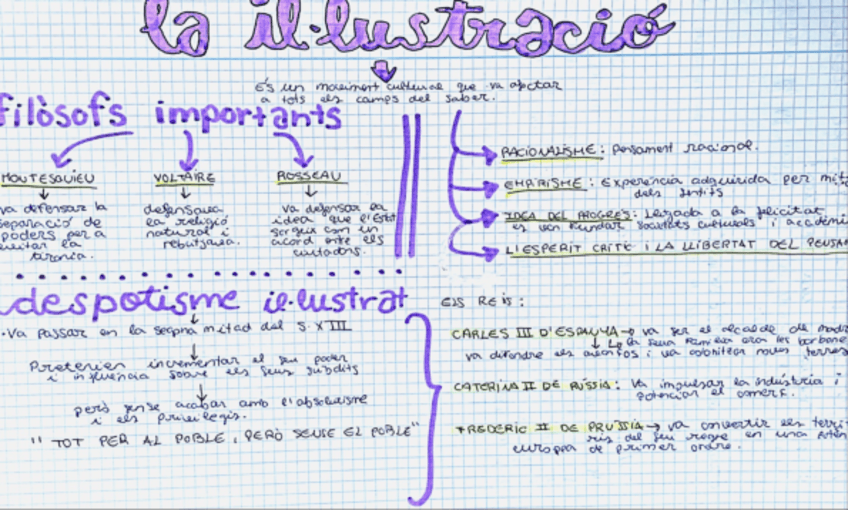 la il·lustració
És un moviment cultural que va afectar
a tots els camps del saber.
filòsofs importants
MONTESQUIEU
va defensar la
separació de
poders per a
evitar la
tirania.
VOLTAIRE
defensava
la religió
natural i
rebutjava.
ROSSEAU
va defensar la
idea que l'Est
sorgue com un
acord entre els
ciutadans.
RACIONALISME: Pensament racional.
EMPIRISME: Experiència adquirida per mit
dels sentits
IDEA DEL PROGRÉS: lligada a la felicitat
es van fundar societats culturals i acadèmi
L'ESPERIT CRÍTIC I LA LLIBERTAT DEL PENSA
despotisme il·lustrat
·Va passar en la segona mitad del S·XIII
Pretenien incrementar el seu poder
i influència sobre els seus súbdits
però sense acabar amb l'absolutisme
i els privilegis.
"TOT PER AL POBLE, PERÒ SENSE EL POBLE"
Els Reis:
CARLES III D'ESPANYA → va ser el alcalde de mad
la seua família eren els borbone
va difondre els i va colonitzar noves terres
CATERINA II DE RÚSSIA: Va impulsar la indústria i
potenciar el comerç.
FREDERIC II DE PRÚSSIA → va convertir els terri
ris del seu regne en una
europea de primer ordre.